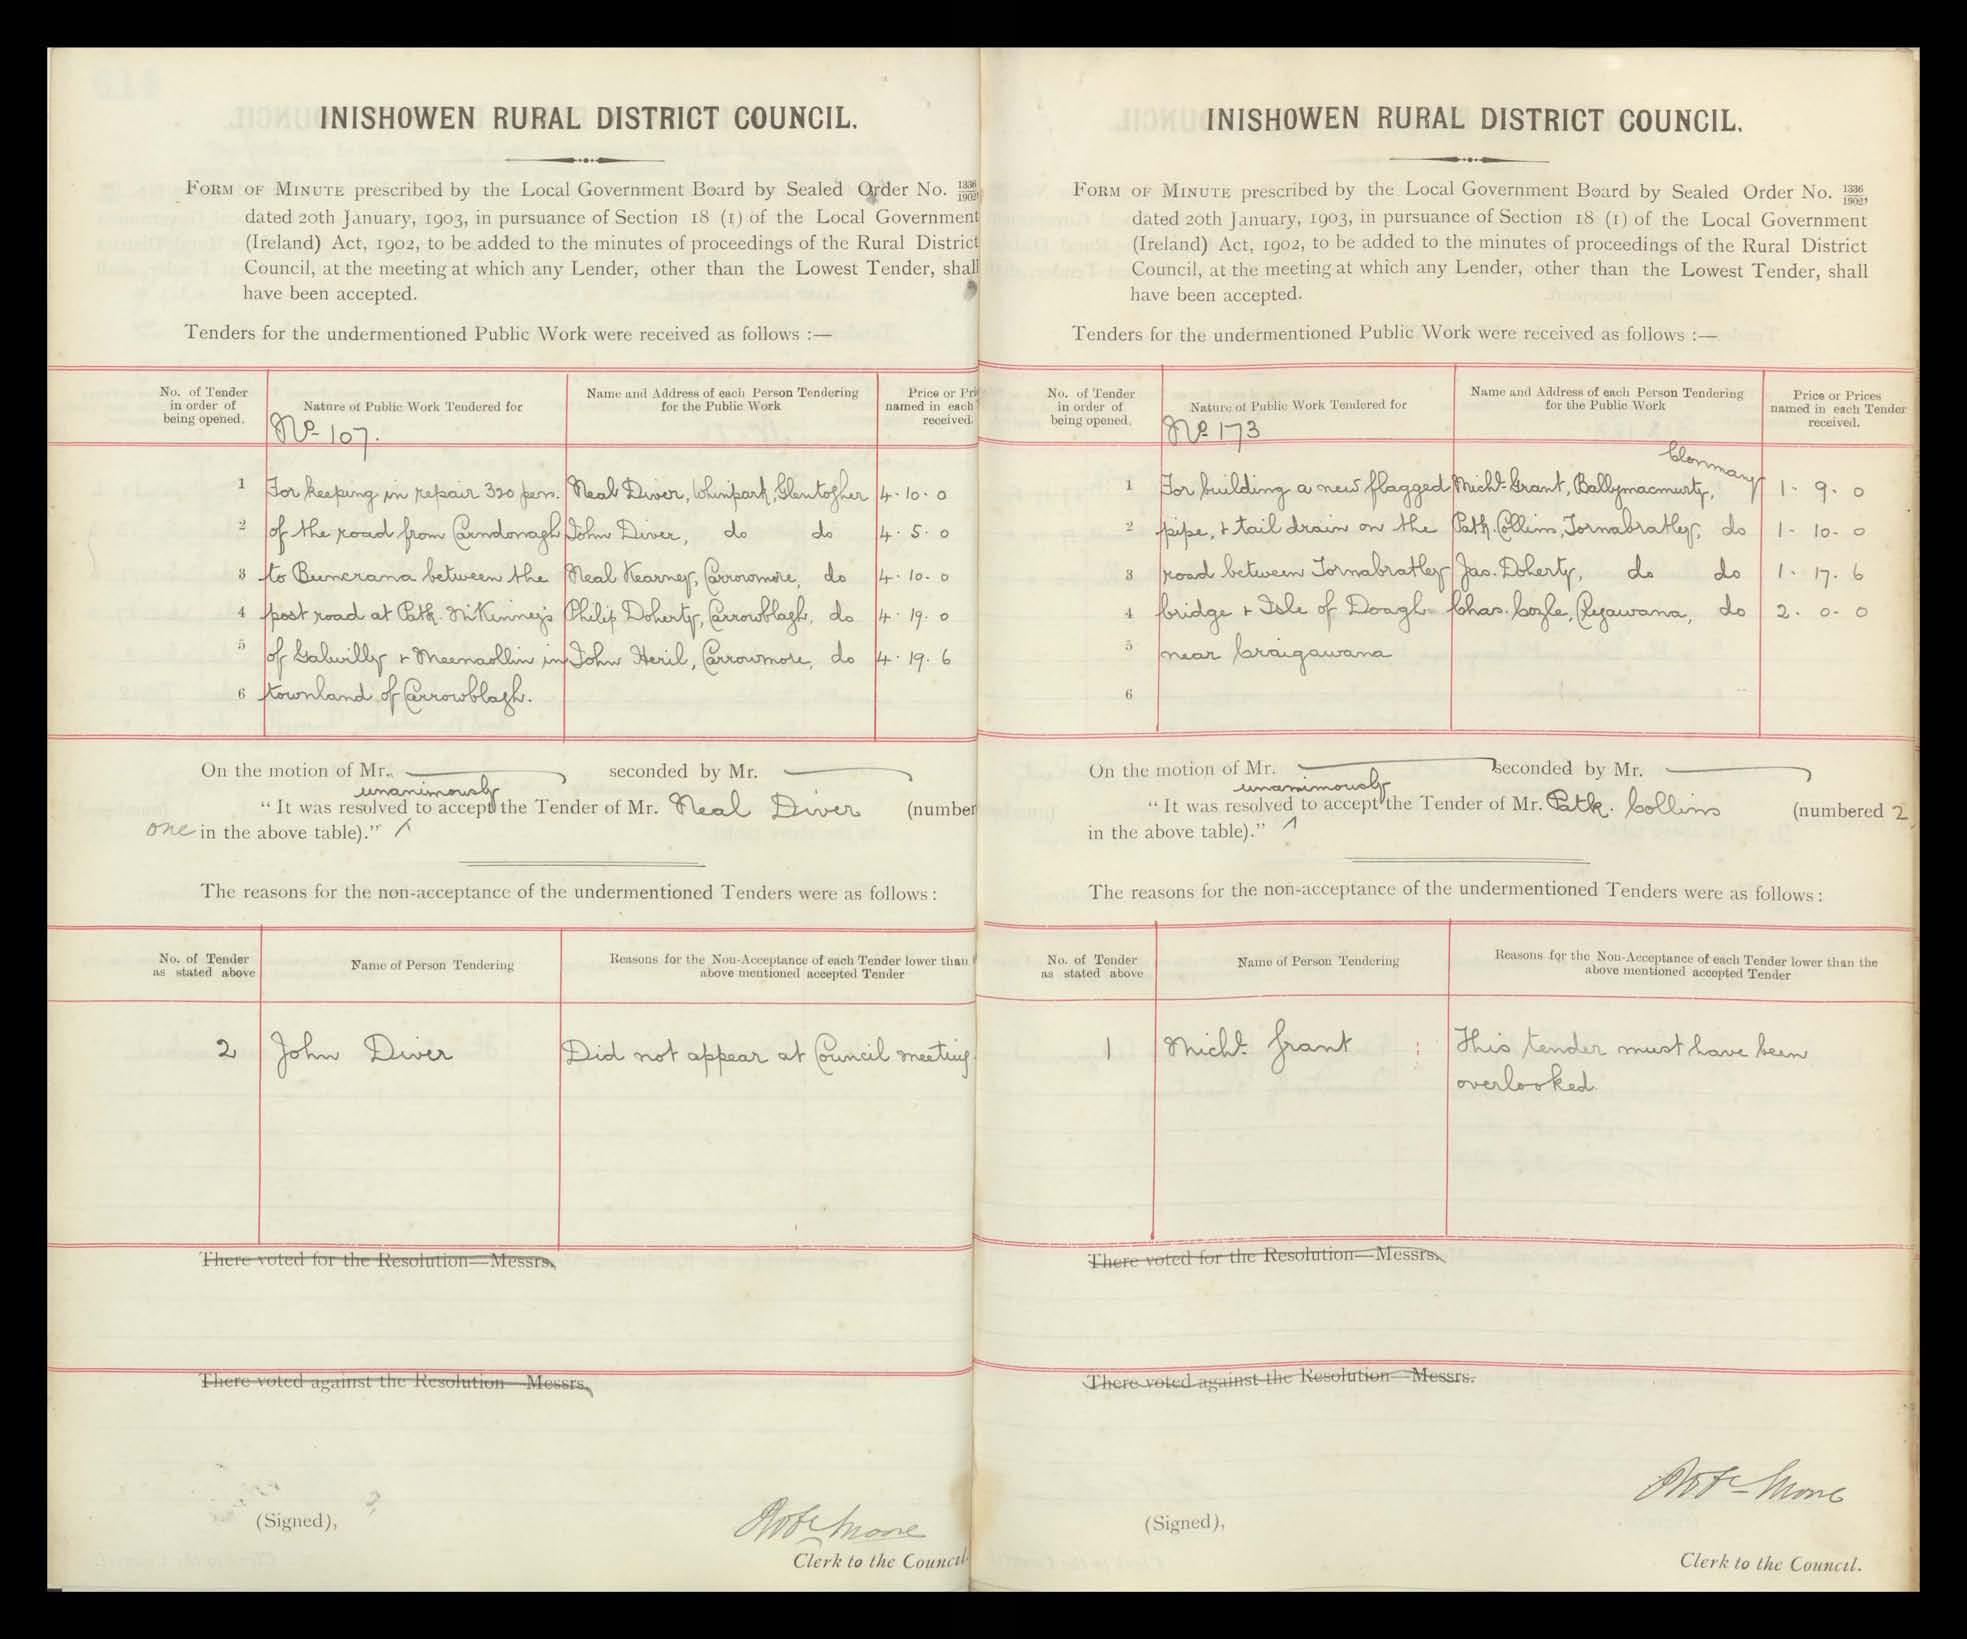 INISHOWEN RURAL DISTRICT COUNCIL.
FORM OF MINUTE prescribed by the Local Government Board by Sealed Order No. 1336/1902,
dated 20th January, 1903, in pursuance of Section 18 (1) of the Local Government
(Ireland) Act, 1902, to be added to the minutes of proceedings of the Rural District
Council, at the meeting at which any Lender, other than the Lowest Tender, shall
have been accepted.
Tenders for the undermentioned Public Work were received as follows :—
No. of Tender in order of being opened.
Nature of Public Work Tendered for
No 107.
Name and Address of each Person Tendering for the Public Work
Price or Pri
named in each
received.
1 For keeping in repair 320 pers. Neal Diver, Whinpark, Glentogher 4 · 10 · 0
2 of the road from Carndonagh John Diver, do do 4 · 5 · 0
3 to Buncrana between the Neal Kearney, Carrowmore, do 4 · 10 · 0
4 post road at Patk. McKinney's Philip Doherty, Carrowblagh, do 4 · 19 · 0
5 of Galwilly + Meenaollin in John Heril, Carrowmore, do 4 · 19 · 6
6 townland of Carrowblagh.
On the motion of Mr. seconded by Mr.
unanimously
" It was resolved to accept the Tender of Mr. Neal Diver (number
one in the above table)."
The reasons for the non-acceptance of the undermentioned Tenders were as follows :
No. of Tender as stated above
Name of Person Tendering
Reasons for the Non-Acceptance of each Tender lower than
above mentioned accepted Tender
2 John Diver Did not appear at Council meeting
There voted for the Resolution—Messrs.
There voted against the Resolution—Messrs.
(Signed), Robt Moore
Clerk to the Council.
INISHOWEN RURAL DISTRICT COUNCIL.
FORM OF MINUTE prescribed by the Local Government Board by Sealed Order No. 1336/1902,
dated 20th January, 1903, in pursuance of Section 18 (1) of the Local Government
(Ireland) Act, 1902, to be added to the minutes of proceedings of the Rural District
Council, at the meeting at which any Lender, other than the Lowest Tender, shall
have been accepted.
Tenders for the undermentioned Public Work were received as follows :—
No. of Tender in order of being opened.
Nature of Public Work Tendered for
No 173
Name and Address of each Person Tendering for the Public Work
Price or Prices named in each Tender received.
Clonmany
1 For building a new flagged Michl. Grant, Ballymacmurty, 1 · 9 · 0
2 pipe, + tail drain on the Patk. Collins, Tornabratley, do 1 · 10 · 0
3 road between Tornabratley Jas. Doherty, do do 1 · 17 · 6
4 bridge + Isle of Doagh Chas. Coyle, do 2 · 0 · 0
5 near Craigawana
6
On the motion of Mr. seconded by Mr.
unanimously
" It was resolved to accept the Tender of Mr. Patk. Collins (numbered 2
in the above table)."
The reasons for the non-acceptance of the undermentioned Tenders were as follows :
No. of Tender as stated above
Name of Person Tendering
Reasons for the Non-Acceptance of each Tender lower than the
above mentioned accepted Tender
1 Michl. Grant This tender must have been
overlooked.
There voted for the Resolution—Messrs.
There voted against the Resolution—Messrs.
(Signed), Robt Moore
Clerk to the Council.